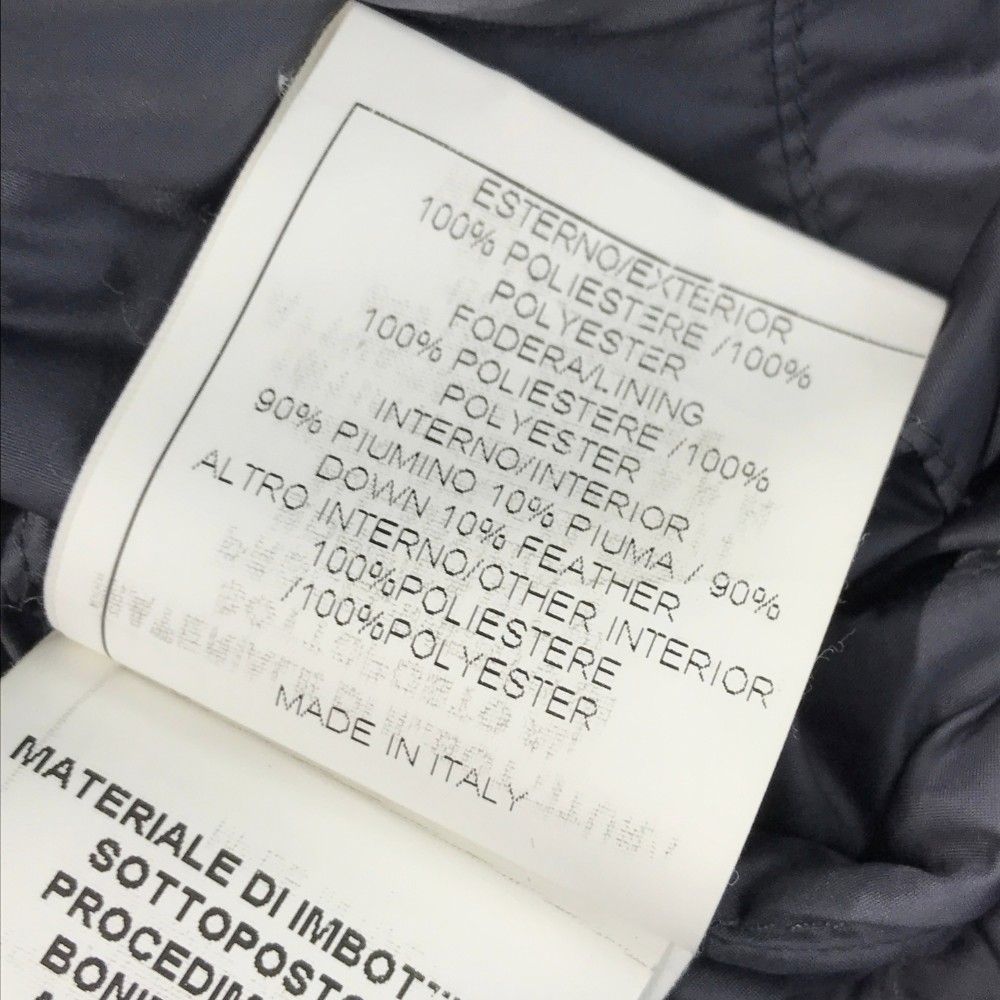 ESTERNO/EXTERIOR
100% POLIESTERE /100%
POLYESTER
FODERA/LINING
100% POLIESTERE /100%
POLYESTER
INTERNO/INTERIOR
90% PIUMINO 10% PIUMA / 90%
DOWN 10% FEATHER
ALTRO INTERNO/OTHER INTERIOR
100%POLIESTERE
/100%POLYESTER
MADE IN ITALY
MATERIALE DI
SOTTOPOSTO